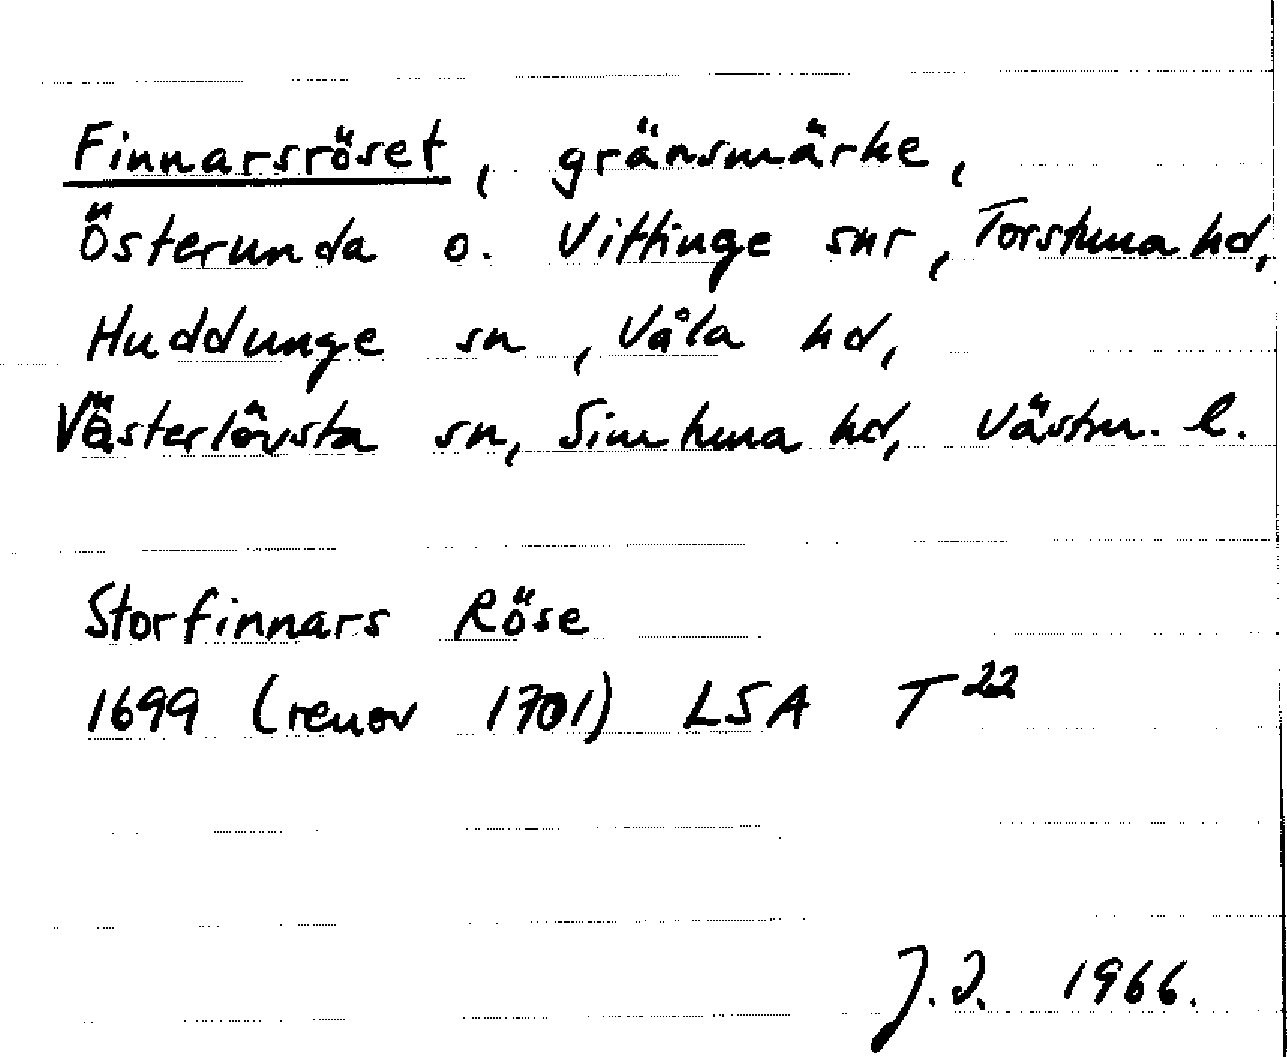 Finnarsröset, gränsmärke,
Österunda o. Vittinge snr, Torstuna hd,
Huddunge sn, Våla hd,
Västerlövsta sn, Simtuna hd, Västm. l.
Storfinnars Röse
1699 (renov 1701) LSA T 22
J.I. 1966.